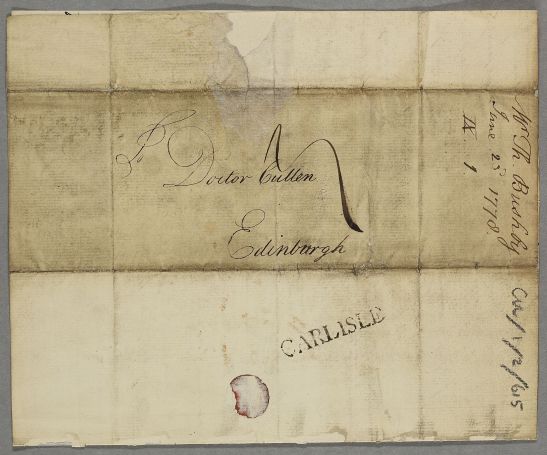 Doctor Cullen
Edinburgh
CARLISLE
Mr Th. Bushby
June 23d 1778
IX. 1
Cul/1/2/615